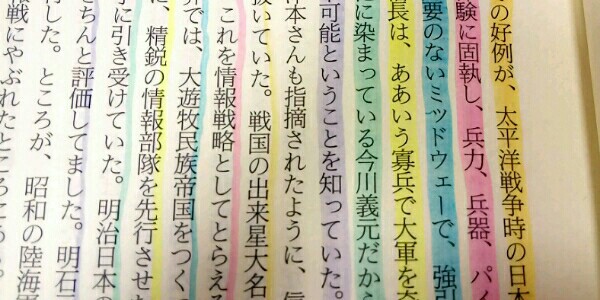 の好例が、太平洋戦争時の日本
験に固執し、兵力、兵器、パイ
要のないミッドウェーで、強引
長は、ああいう寡兵で大軍を
に染まっている今川義元だから
可能ということを知っていた。
本さんも指摘されたように、信
抜いていた。戦国の出来星大名
これを情報戦略としてとらえる
界では、大遊牧民族帝国をつくっ
に、精鋭の情報部隊を先行させ
手に引き受けていた。明治日本の
きちんと評価してました。明石元
報戦にやぶれたところにある。
した。ところが、昭和の陸海軍